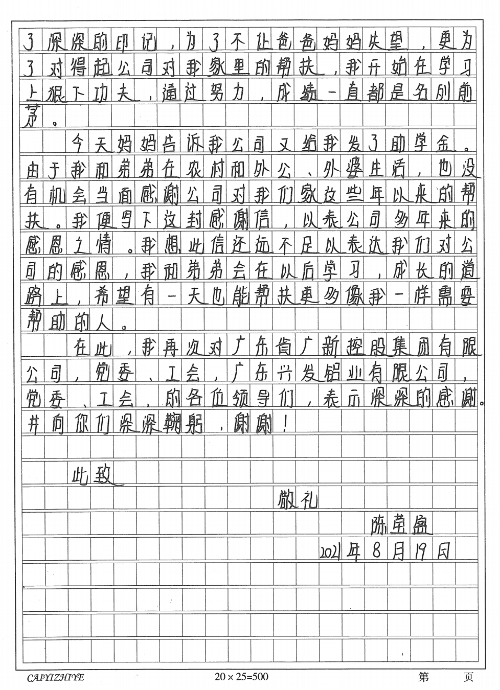 了深深的印记，为了不让爸爸妈妈失望，更为
了对得起公司对我家里的帮扶，我开始在学习
上狠下功夫，通过努力，成绩一直都是名列前
茅。
今天妈妈告诉我公司又给我发了助学金。
由于我和弟弟在农村和外公、外婆生活，也没
有机会当面感谢公司对我们家这些年以来的帮
扶。我便写下这封感谢信，以表公司多年来的
感恩之情。我想此信还远不足以表达我们对公
司的感恩，我和弟弟会在以后学习，成长的道
路上，希望有一天也能帮扶更多像我一样需要
帮助的人。
在此，我再次对广东省广新控股集团有限
公司，党委、工会，广东兴发铝业有限公司，
党委、工会、的各位领导们，表示深深的感谢。
并向你们深深鞠躬，谢谢！
此致
敬礼
陈莹盈
2021年8月19日
CAIYIZHIYE 20×25=500 第 页